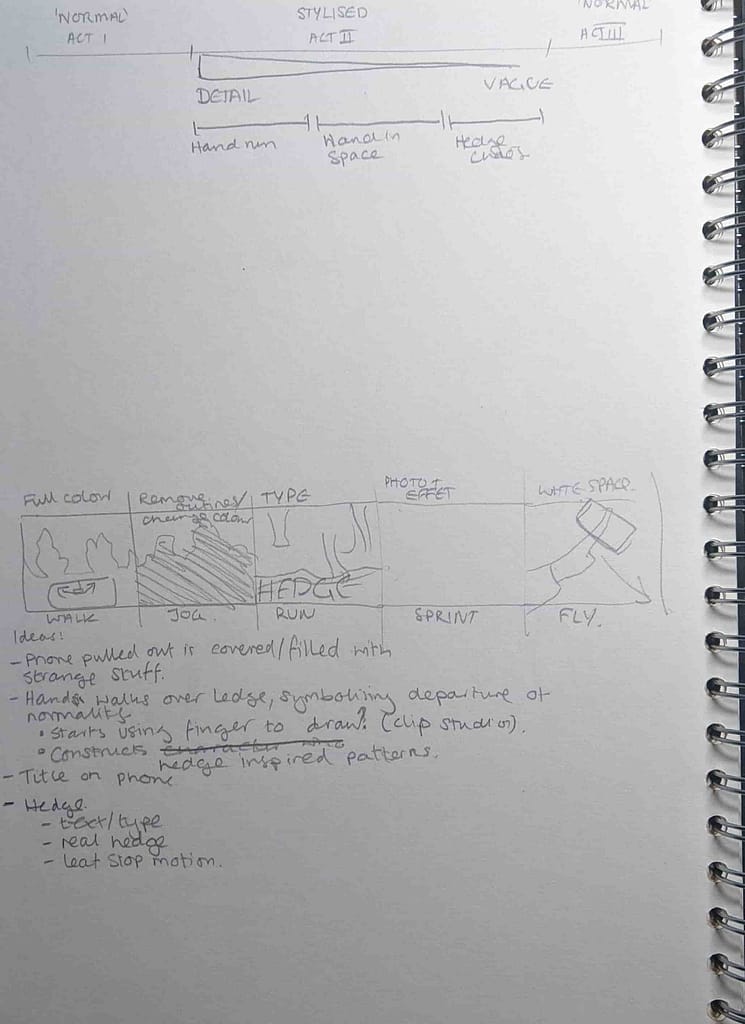 'NORMAL' STYLISED 'NORMAL'
ACT I ACT II ACT III
DETAIL VAGUE
Hand run Hand in Hedge
space
Full colour Remove TYPE PHOTO + WHITE SPACE.
outlines/ EFFET
change colour
HEDGE
WALK JOG. RUN SPRINT FLY.
Ideas:
- Phone pulled out is covered/filled with
strange stuff.
- Hands walks over ledge, symbolising departure of
normality
• Starts using finger to draw? (clip studio).
• Constructs
hedge inspired patterns.
- Title on phone
- Hedge.
- text/type
- real hedge
- leaf stop motion.